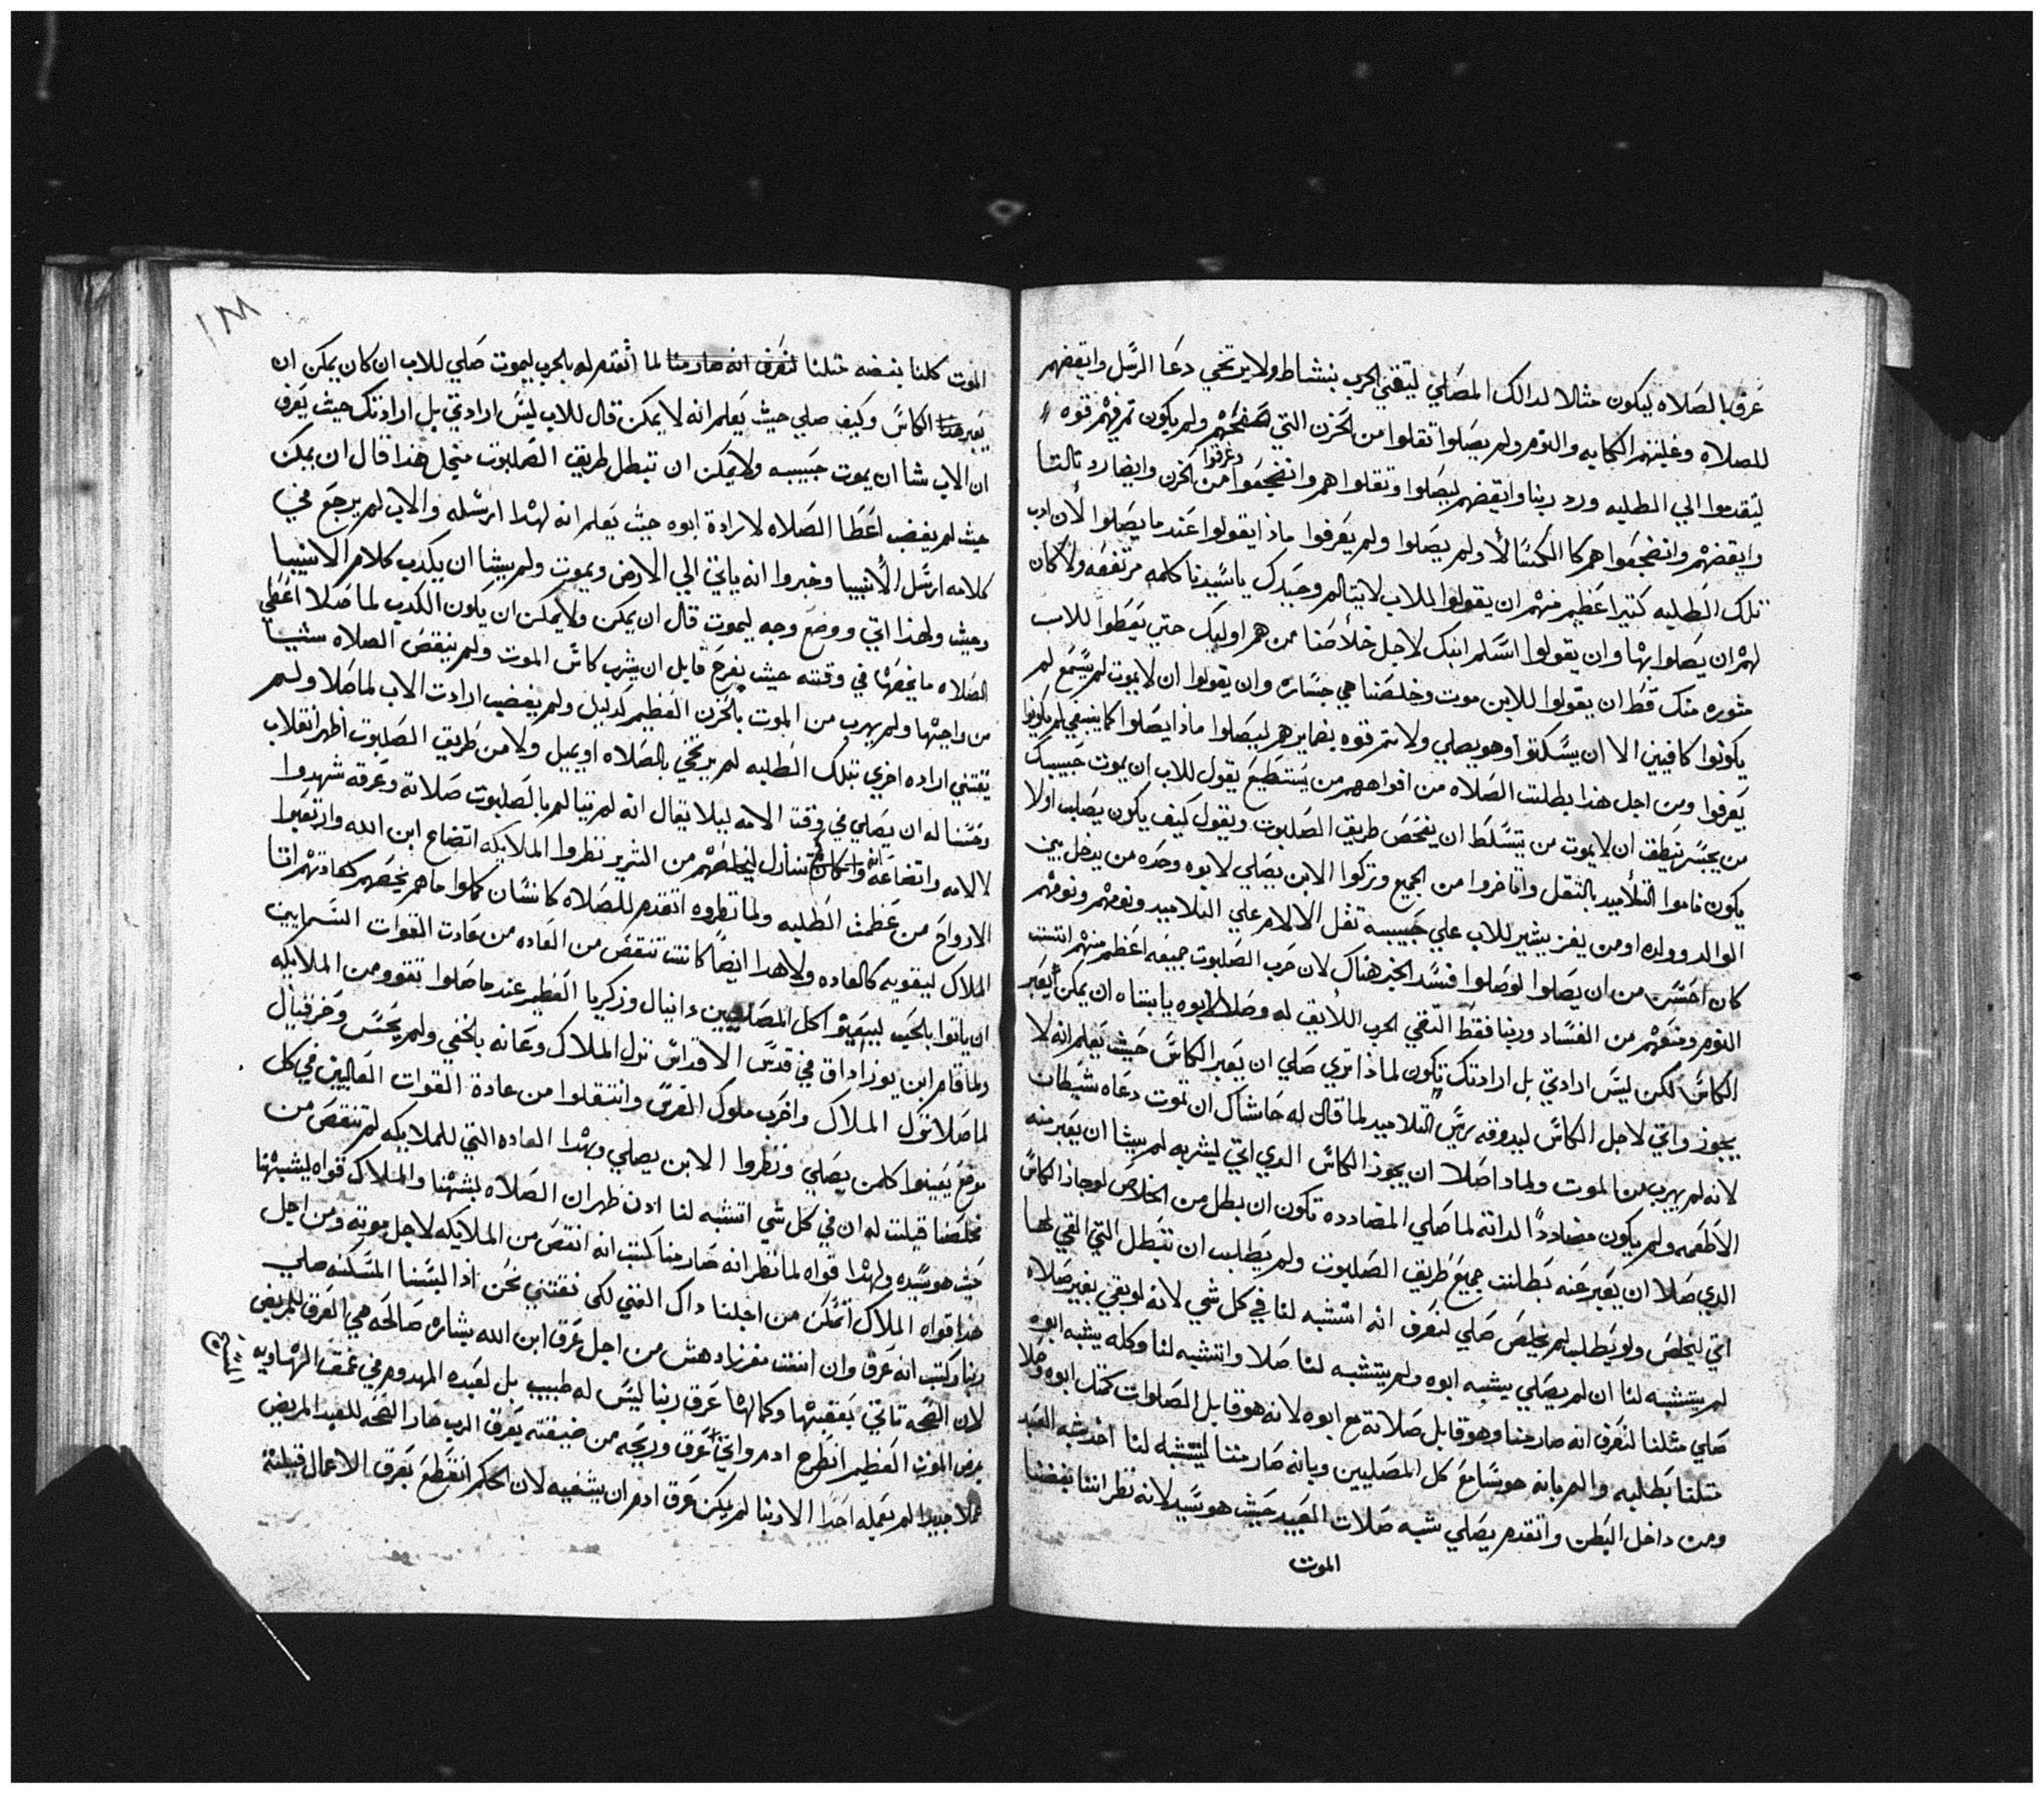 عرق بالصلاه ليكون مثالا لدالك المصلي ليقني الحرب بنشاط ولا يرتخي دعا الرسل وايقضهم
للصلاه وغلبتهم الكابه والنوم ولم يصلوا تقلوا من الحزن التي ولم يكون تم فيهم قوه
ليقدموا الي الطلبه ورد ربنا وايقضهم ليصلوا وتقلوا هم وانضجعوا من الحزن وايضا رد تالتا
وايقضهم وانضجعوا هم كا الكسالا ولم يصلوا ولم يعرفوا ماذا يقولوا عند ما يصلوا لأن ادب
تلك الطلبه كتير اعظم منهم ان يقولوا للاب لا يتالم وحيدك يا سيدنا كلمه مرتفعه ولا كان
لهم ان يصلوا بها وان يقولوا اسلم ابنك لاجل خلاصنا ممن هم اوليك حتي يعطوا للاب
مشوره منك قط ان يقولوا للابن موت وخلصنا هي جساره وان يقولوا ان لا يموت لم يسمع لم
يكونوا كافيين الا ان يسكتوا وهو يصلي ولا تم قوه بضايرهم ليصلوا ماذا يصلوا كما ينبغي لم يكونوا
يعرفوا ومن اجل هذا بطلت الصلاه من افواههم من يستطيع يقول للاب ان يموت حبيبك
من يجسر ينطق ان لا يموت من يتسلط ان يفحص طريق الصلبوت ويقول كيف يكون يصلب اولا
يكون ناموا التلاميد بالتقل واتاخروا من الجميع وتركوا الابن يصلي لابوه وحده من يدخل بين
الوالد وولده او من يفز يشير للاب علي حبيبه تقل الالام علي التلاميد ونومهم ونومهم
كان احسن من ان يصلوا لو صلوا فسد الخبر هناك لان حرب الصلبوت جميعه اعظم منهم انتنت
النوم ومنعهم من الفساد وربنا فقط التقي الحرب اللايق له وصلا لابوه يا ابتاه ان يمكن يعبر
الكاس لكن ليس ارادتي بل ارادتك تكون لماذا تري صلي ان يعبر الكاس حيث يعلم انه لا
يجوز واتي لاجل الكاس ليدوقه ريس التلاميد لما قال له حاشاك ان تموت دعاه شيطان
لانه لم يهرب من الموت ولماذا صلا ان يجوز الكاس الدي اتي ليشربه لم يشا ان يعبر منه
الاطعمه ولم يكون مضاددا لداته لما صلي المضادده تكون ان بطل من الخلاص لو جاز الكاس
الدي صلا ان يعبر عنه بطلت جميع طريق الصلبوت ولم يطلب ان تتبطل التي اتي لها
اتي ليخلص ولو يطلب لم يخلص صلي لنعرف انه اتشبه لنا في كل شي لانه لو بقي بغير صلاه
لم يتشبه لنا ان لم يصلي يشبه ابوه ولم يتشبه لنا صلا واتشبه لنا وكله يشبه ابوه
صلي مثلنا لنعرف انه صار منا وهو قابل صلاته مع ابوه لانه هو قابل الصلوات كمتل ابوه وصلا
متلنا بطلبه والم بانه هو سامع كل المصليين وبانه صار مننا ليتشبه لنا اخد شبه العبد
ومن داخل البطن واتقدم يصلي شبه صلات العبيد حيث هو سيد لانه نظر اننا بغضنا
الموت
١٨٨
الموت كلنا بغضه متلنا لنعرف انه صار منا لما اتقدم له بالحرب ليموت صلي للاب ان كان يمكن ان
يعبر هدا الكاس وكيف صلي حيث يعلم انه لا يمكن قال للاب ليس ارادتي بل ارادتك حيث يعرف
ان الاب شا ان يموت حبيبه ولا يمكن ان تبطل طريق الصلبوت منجل هذا قال ان يمكن
حيث لم يغضب اعطا الصلاه لارادة ابوه حيث يعلم انه لهدا ارسله والاب لم يرجع في
كلامه ارسل الأنبيا وخبروا انه ياتي الي الارض ويموت ولم يشا ان يكدب كلام الانبيا
وحيث ولهذا اتي ووضع وجه ليموت قال ان يمكن ولا يمكن ان يكون الكدب لما صلا اعطي
الصلاه ما يخصها في وقته حيث يفرح قابل ان يشرب كاس الموت ولم ينقص الصلاه شيا
من واجبها ولم يهرب من الموت بالحزن العظيم كدليل ولم يغضب ارادت الاب لما صلا ولم
يقتني اراده اخري بتلك الطلبه لم يرتخي بالصلاه او يميل ولا من طريق الصلبوت اظهر انقلاب
وحسنا له ان يصلي في وقت الامه ليلا يقال انه لم يتالم بالصلبوت صلاته وعرقه شهدوا
لالامه واتضاعه وانه تنازل ليخلصهم من الشرير نظروا الملايكه اتضاع ابن الله وارتعبوا
الارواح من عظمت الطلبه ولما نظروه اتقدم للصلاه كانسان كملوا ما هم يخصهم كعادتهم اتا
الملاك ليقويه كالعاده ولا هدا ايضا كانت تنقص من العاده من عادت القوات السمايين
ان ياتوا بالحب ليعينوا كل المصليين دانيال وزكريا العظيم عند ما صلوا تقووا من الملايكه
ولما قام ابن يوزاداق في قدس الاقداس نزل الملاك وعانه بالخفي ولم يحس وحزقيال
لما صلا نزل الملاك واخرب ملوك الفرس وانتقلوا من عادة القوات العاليين في كل
موضع يعينوا كلمن يصلي ونظروا الابن يصلي وبهدا العاده التي للملايكه لم تنقص من
مخلصنا قيلت له ان في كل شي اتشبه لنا ادن ظهر ان الصلاه بشبهنا والملاك قواه ليشبهنا
حيث هو سيده ولهدا قواه لما نظر انه صار منا كتب انه انتقص من الملايكه لاجل موته ومن اجل
هدا قواه الملاك اتمسكن من اجلنا داك الغني لكي نقتني نحن ادا البسنا المسكنه صلي
ربنا وكتب انه عرق وان انت مفرز ادهش من اجل عرق ابن الله بشاره صالحه هي العرق للمريض
لان الصحه تاتي بعقبها وكمالها عرق ربنا ليس له طبيب بل لعبده المهدوم في عمق الهاويه
بمرض الموت العظيم انطرح ادم واتي عرق وريحه من ضيقته بعرق الرب صار الصحه للعبد المريض
عملا جديدا لم يعمله احدا الا ربنا لم يكن عرق ادم ان يشفيه لان الحكم انقطع بعرق الاعمال قبلته